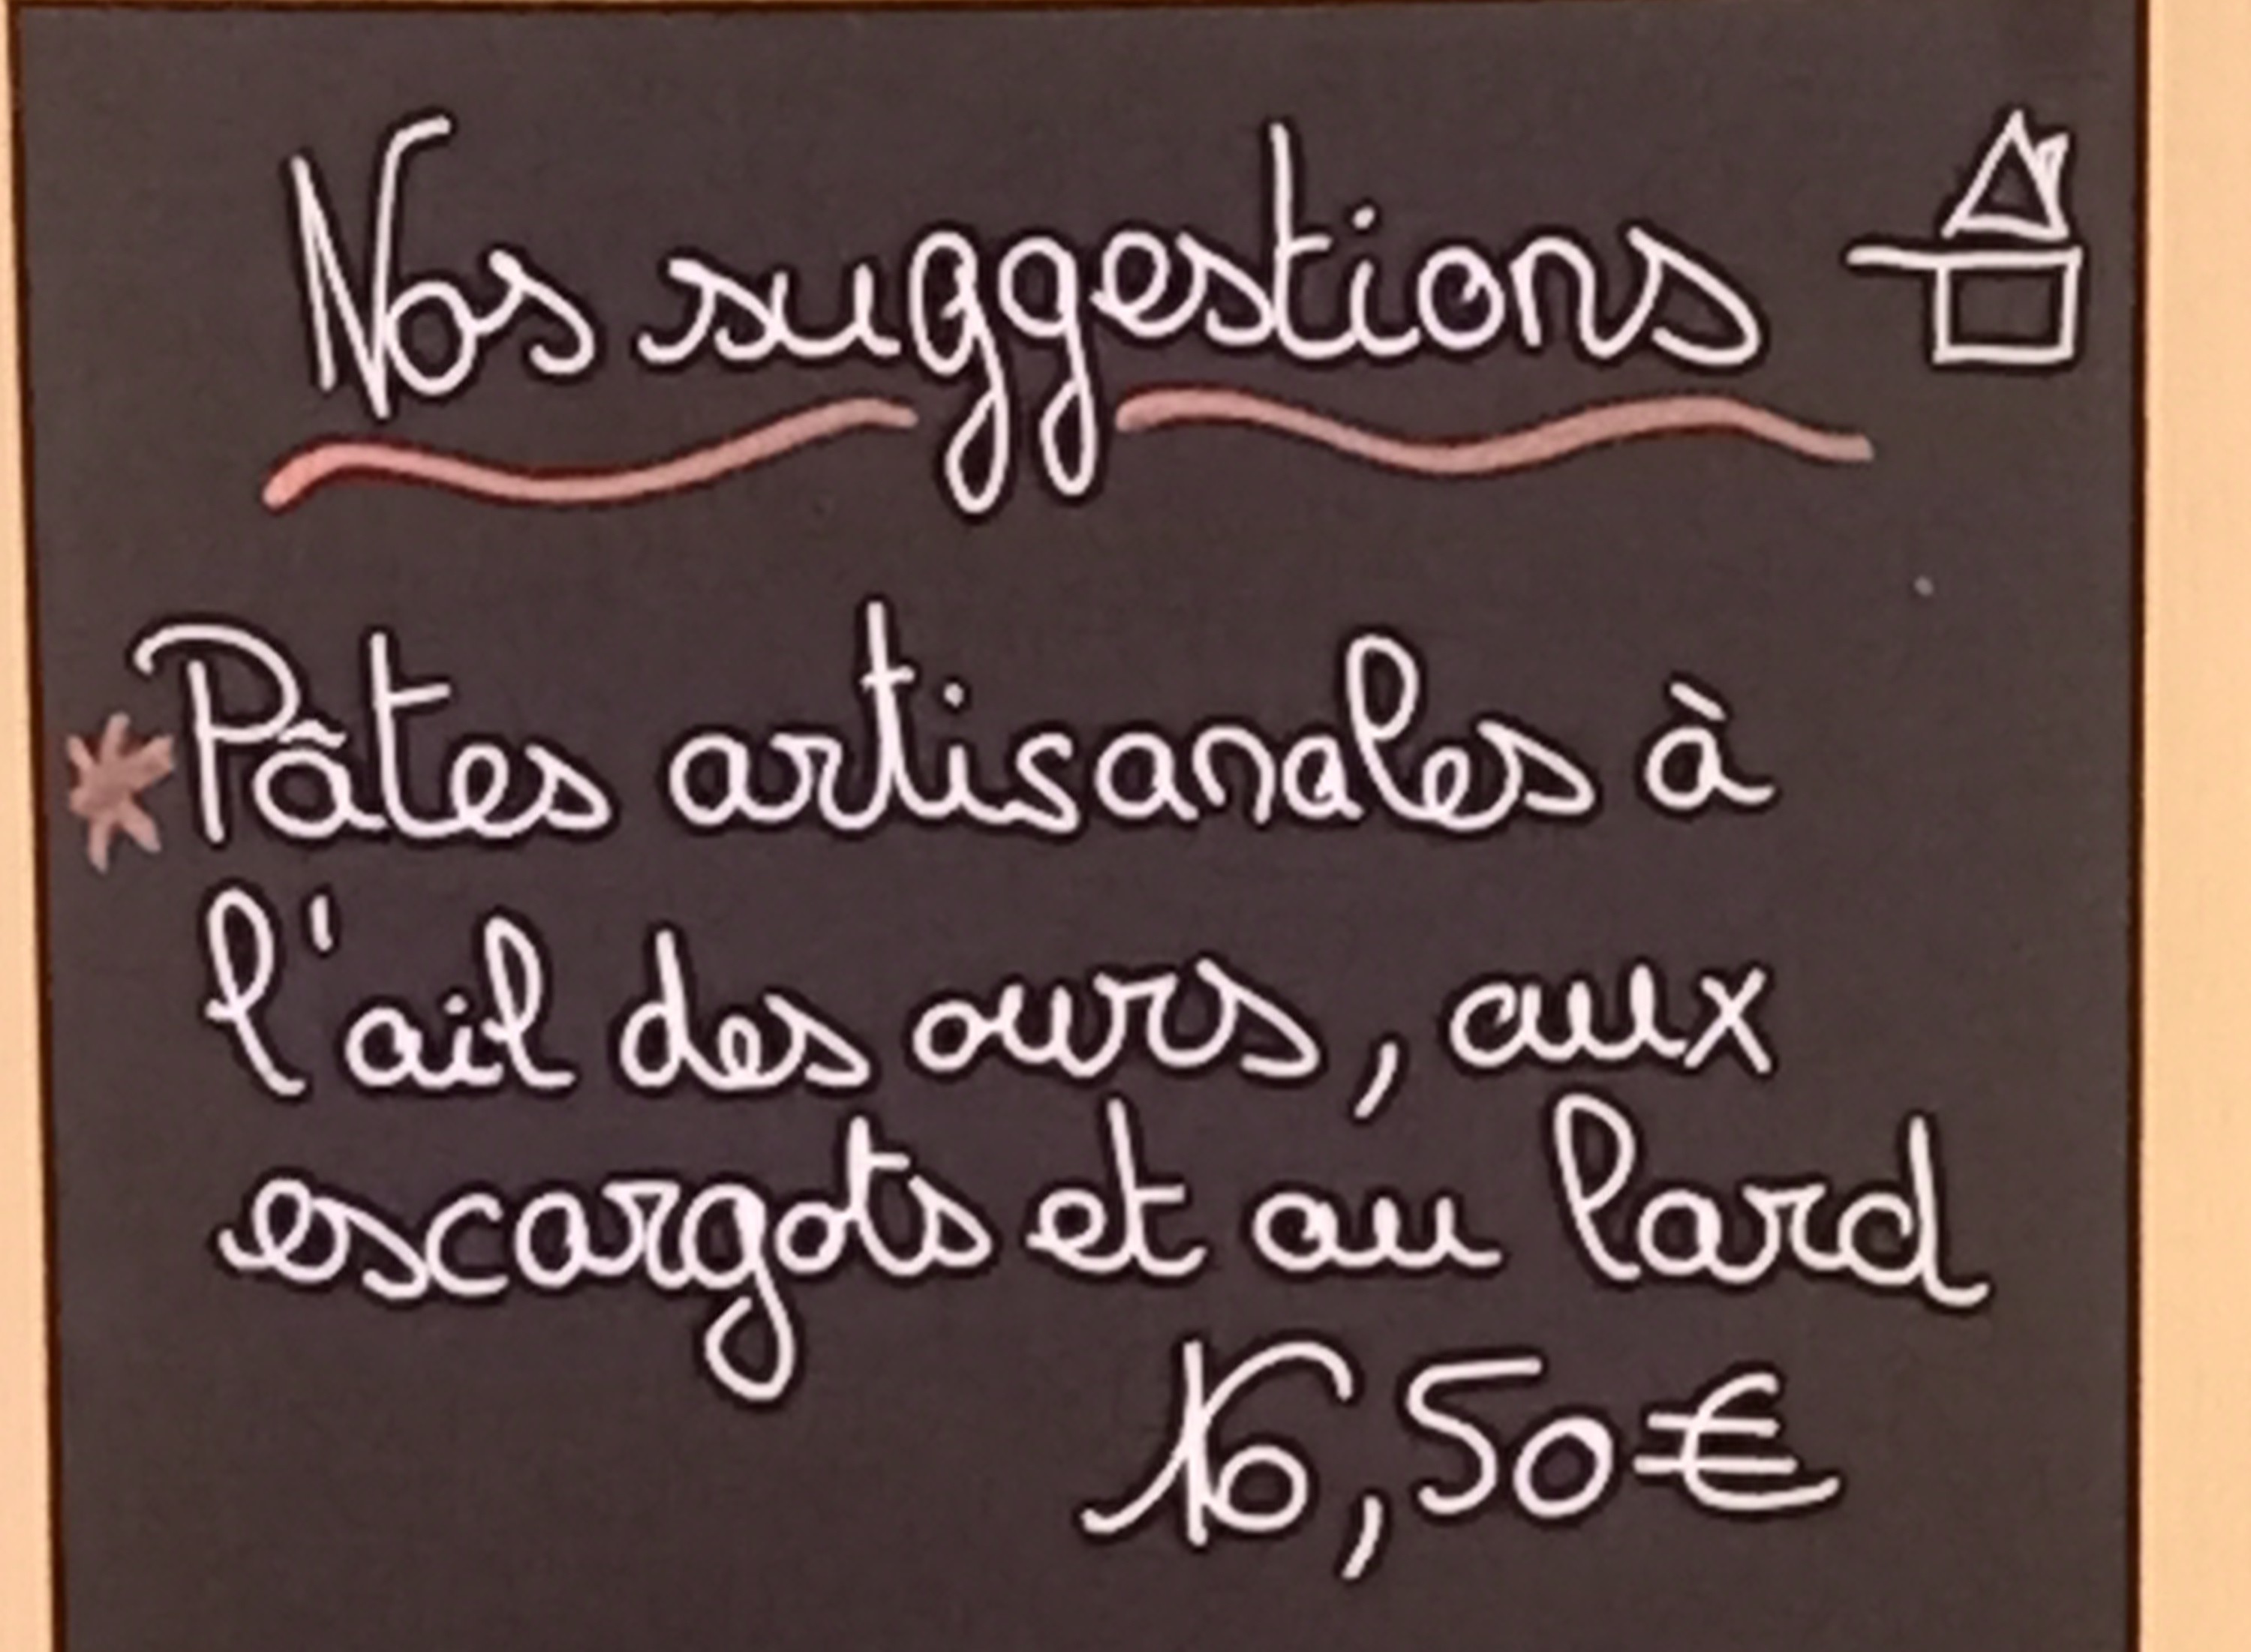 Nos suggestions
*Pâtes artisanales à
l'ail des ours, aux
escargots et au lard
16,50€